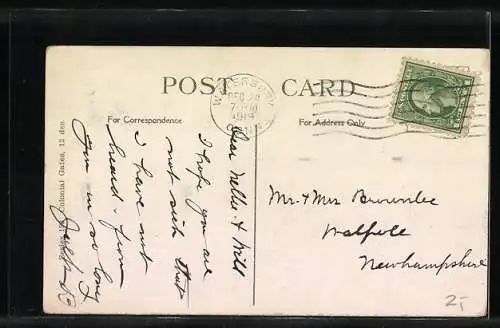 POST CARD
For Correspondence
For Address Only
WATERBURY
DEC
7 PM
1914
CONN
Dear Nellie & Will
I hope you are
not sick that
I have not
heard from
you in so long
Mr. & Mrs Brownlee
Walpole
Newhampshire
Colonial Gates, 12 des.
25